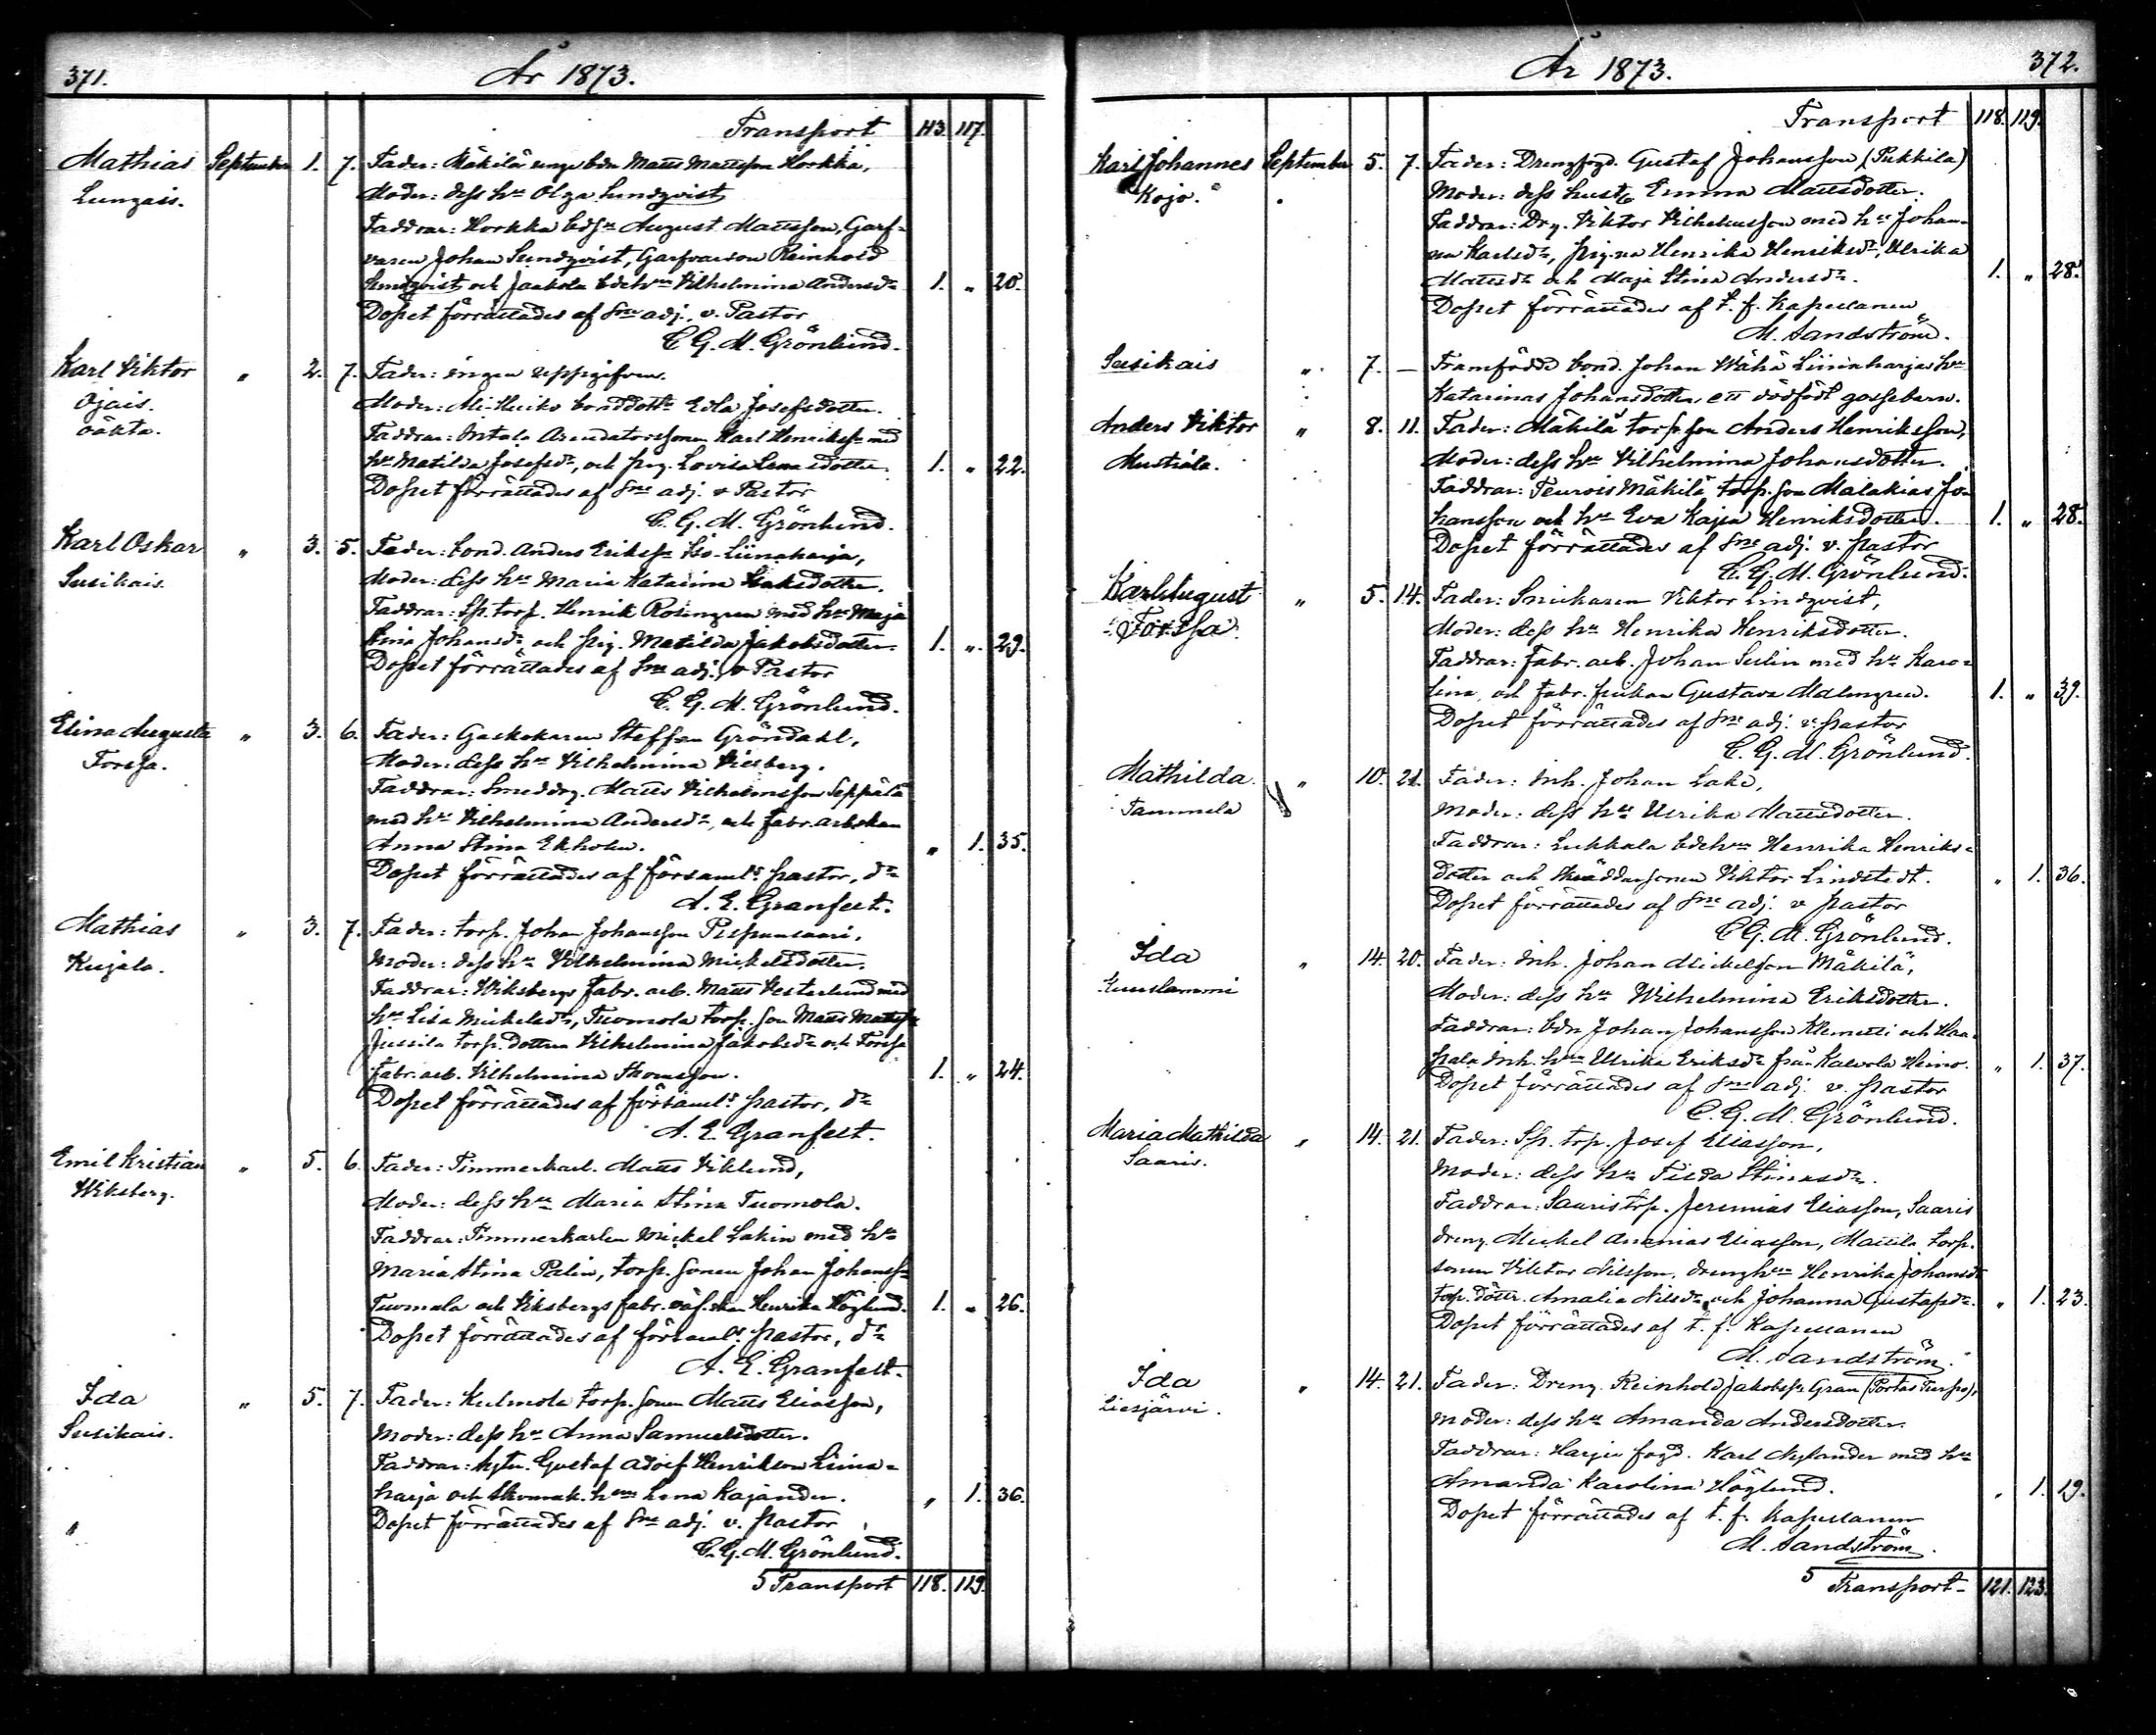 371. År 1873.
Transport 113. 117.
Mathias September 1. 7. Fader: Mäkilä unge bdn Matts Mattsson Horkka,
Lunzais. Moder: dess hu Olga Lundqvist
Faddrar: Horkka bdsn August Mattsson, Garf-
varen Johan Lundqvist, Garfvarson Reinhold
Lundqvist och Jaakola bdehun Vilhelmina Andersdr 1. " 20.
Dopet förrättades af sne adj., v. Pastor
C. G. M. Grönlund.
Karl Viktor " 2. 7. Fader: ingen uppgifven.
Ojais. Moder: Ali-Heiko bonddottr Edla Josefsdotter.
oäkta. Faddrar: Intala Arendatorssonen Karl Henrikss. med
hu Matilda Josefsdr, och pig. Lovisa Lenasdotter. 1. " 22.
Dopet förrättades af sne adj. v Pastor
C. G. M. Grönlund.
Karl Oskar " 3. 5. Fader: bond. Anders Erikss. Iso-Liinaharja,
Susikais. Moder: dess hu Maria Katarina Isaksdotter.
Faddrar: Sp. torp. Henrik Rosengren med hu Maja
Stina Johansdr och pig. Matilda Jakobsdotter. 1. " 29.
Dopet förrättades af sne adj. v Pastor
C. G. M. Grönlund.
Elina Augusta " 3. 6. Fader: Gaskokaren Steffan Gröndahl,
Forssa. Moder: dess hu Vilhelmina Viesberg.
Faddrar: Smeddrg. Matts Vilhelmsson Seppälä
med hu Vilhelmina Andersdr, och fabr. arb.skan
Anna Stina Ekholm. " 1. 35.
Dopet förrättades af församl:s pastor, dr
A. E. Granfelt.
Mathias " 3. 7. Fader: torp. Johan Johansson Pispansaari,
Kujala. Moder: dess hu Vilhelmina Mickelsdotter.
Faddrar: Wiksbergs fabr. arb. Matts Vesterlund med
hu Lisa Mickelsdr, Tuomola torp. son Matts Mattss.
Jussila torp. dottren Vilhelmina Jakobsdr och Forssa
fabr. arb. Vilhelmina Thomsson. 1. " 24.
Dopet förrättades af församl:s pastor, dr
A. E. Granfelt.
Emil Kristian " 5. 6. Fader: Timmerkarl. Matts Viklund,
Wiksberg. Moder: dess hu Maria Stina Tuomola.
Faddrar: Timmerkarlen Mickel Lakin med hu
Maria Stina Palin, torp. sonen Johan Johanss.
Tuomola och Viksbergs fabr. väf.skan Henrika Höglund. 1. " 26.
Dopet förrättades af församl:s pastor, dr
A. E. Granfelt.
Ida " 5. 7. Fader: Kulmola torp. sonen Matts Eliasson,
Susikais. Moder: dess hu Anna Samuelsdotter.
Faddrar: Gustaf Adolf Henrikson Liina-
harja och Skomak. hun Lena Kajander. " 1. 36.
Dopet förrättades af sne adj. v. pastor
C. G. M. Grönlund.
5 Transport 118. 119.
År 1873. 372.
Transport 118. 119.
Karl Johannes September 5. 7. Fader: Drengfogd. Gustaf Johansson (Pukkila)
Kojo. Moder: dess hustr Emma Mattsdotter.
Faddrar: Drg. Viktor Vilhelmsson med hu Johan-
na Karlsdr, pig.na Henrika Henriksdr, Ulrika
Mattsdr och Maja Stina Andersdr. 1. " 28.
Dopet förrättades af t. f. Kapellanen
M. Sandström.
Susikais " 7. — Framfödde bond. Johan Wähä Liinaharjas hu
Katarinas Johansdotter, ett dödfödt gossebarn.
Anders Viktor " 8. 11. Fader: Mäkilä torp. son Anders Henriksson,
Mustiala. Moder: dess hu Vilhelmina Johansdotter.
Faddrar: Teurois Mäkilä torp. son Malakias Jo-
hansson och hu Eva Kajsa Henriksdotter. 1. " 28.
Dopet förrättades af sne adj. v. pastor
C. G. M. Grönlund.
Karl August " 5. 14. Fader: Snickaren Viktor Lindqvist,
Forssa. Moder: dess hu Henrika Henriksdotter.
Faddrar: Fabr. arb. Johan Selin med hu Karo-
lina, och fabr. pickan Gustava Malmgren. 1. " 39.
Dopet förrättades af sne adj. v. pastor
C. G. M. Grönlund.
Mathilda " 10. 21. Fader: Inh. Johan Lake,
Tammela Moder: dess hu Ulrika Mattsdotter.
Faddrar: Lukkala bdehun Henrika Henriks-
dotter och Skräddarsonen Viktor Lindstedt. " 1. 36.
Dopet förrättades af sne adj. v pastor
C. G. M. Grönlund.
Ida " 14. 20. Fader: Inh. Johan Mickelsson Mäkilä,
Kuuslammi Moder: dess hu Wilhelmina Eriksdotter.
Faddrar: bdn Johan Johansson Klemetti och Haa-
pala inh. hun Ulrika Eriksdr från Kalvola Heino. " 1. 37.
Dopet förrättades af sne adj. v. pastor
C. G. M. Grönlund.
Maria Mathilda " 14. 21. Fader: Sp. trp. Josef Eliasson,
Saaris. Moder: dess hu Tilda Stinasdr.
Faddrar: Saaris trp. Jeremias Eliasson, Saaris
dreng. Mickel Ananias Eliasson, Mattila torp.
sonen Viktor Nilsson, drenghun Henrika Johansdr
torp. döttr. Amalia Nilsdr och Johanna Gustafsdr. " 1. 23.
Dopet förrättades af t. f. Kapellanen
M. Sandström.
Ida " 14. 21. Fader: Dreng. Reinhold Jakobss. Gran (Portas Turpo),
Liesjärvi. Moder: dess hu Amanda Andersdotter.
Faddrar: Harju fogd. Karl Nylander med hu
Amanda Karolina Höglund. " 1. 19.
Dopet förrättades af t. f. Kapellanen
M. Sandström.
5 Transport 121. 123.